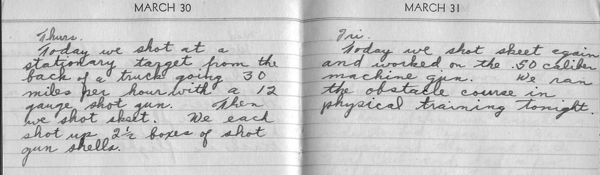 MARCH 30
Thurs.
Today we shot at a
stationary target from the
back of a truck going 30
miles per hour with a 12
gauge shot gun. Then
we shot skeet. We each
shot up 2½ boxes of shot
gun shells.
MARCH 31
Fri.
Today we shot skeet again
and worked on the .50 caliber
machine gun. We ran
the obstacle course in
physical training tonight.